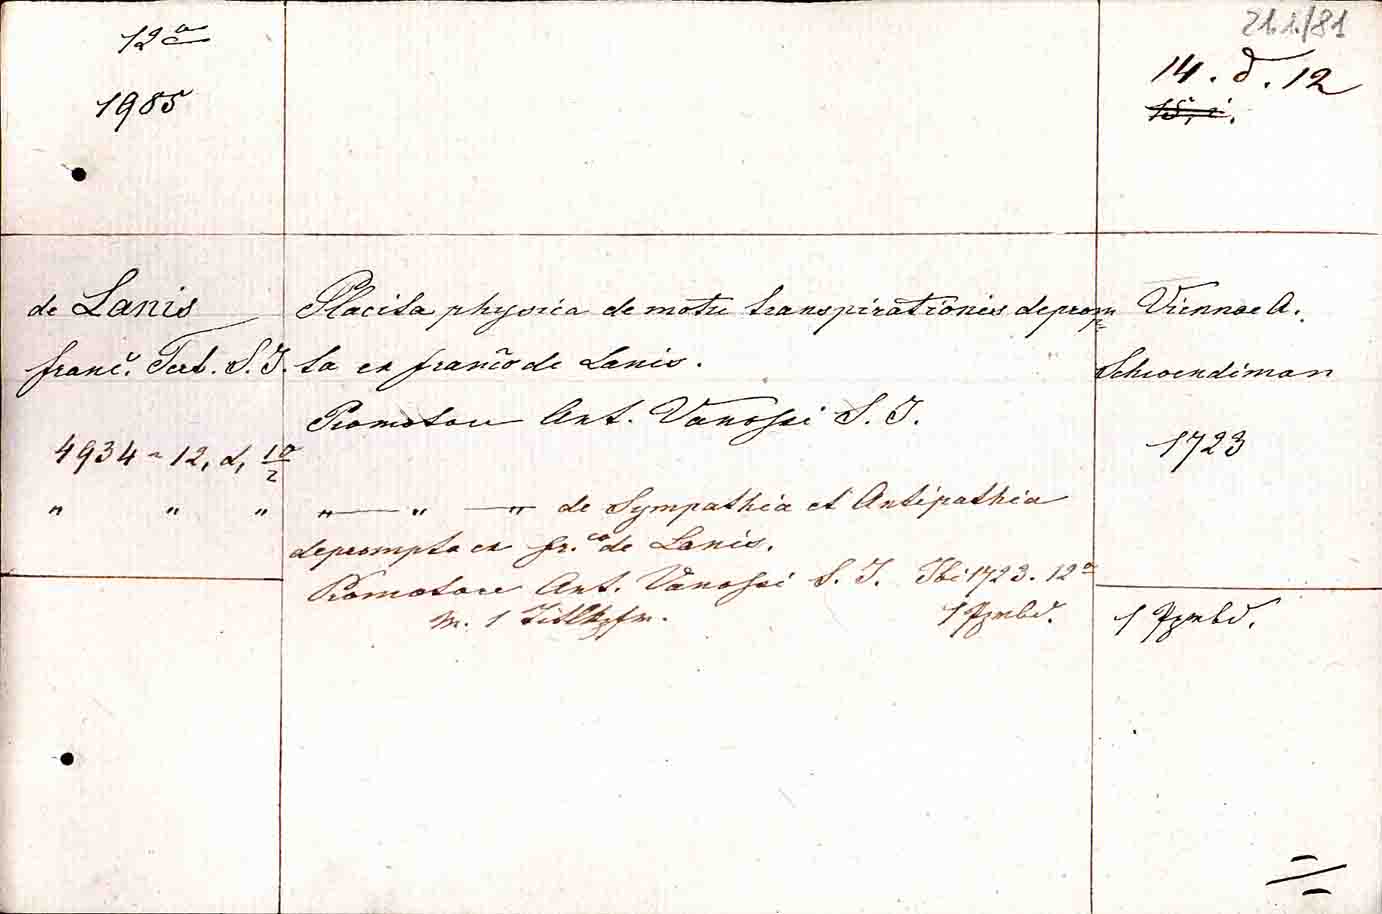 12º
1985
21.1./81
14. d. 12
15, i.
de Lanis
franc̃. Tert. S. J.
4934 - 12, d, 10/2
" " "
Placita physica de motu transpirationis deprom
ta ex franc̃o de Lanis.
Promotore Ant. Vanossi S. J.
" — " — " de Sympathia et Antipathia
deprompta ex fr.co de Lanis.
Promotore Ant. Vanossi S. J. Ibi 1723. 12º
m. 1 Titlkpfr. 1 Pgmbd.
Viennae A.
Schwendiman
1723
1 Pgmbd.